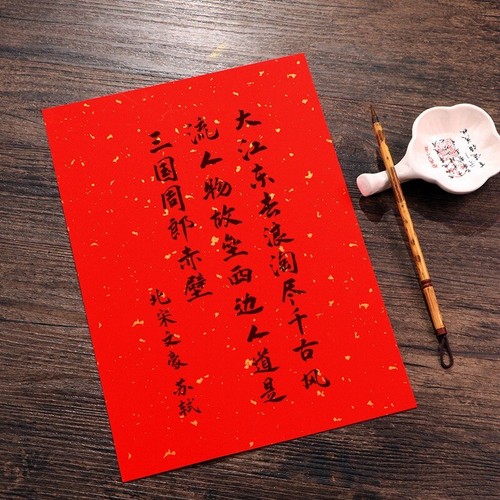 大江东去浪淘尽千古风
流人物故垒西边人道是
三国周郎赤壁
北宋文豪 苏轼